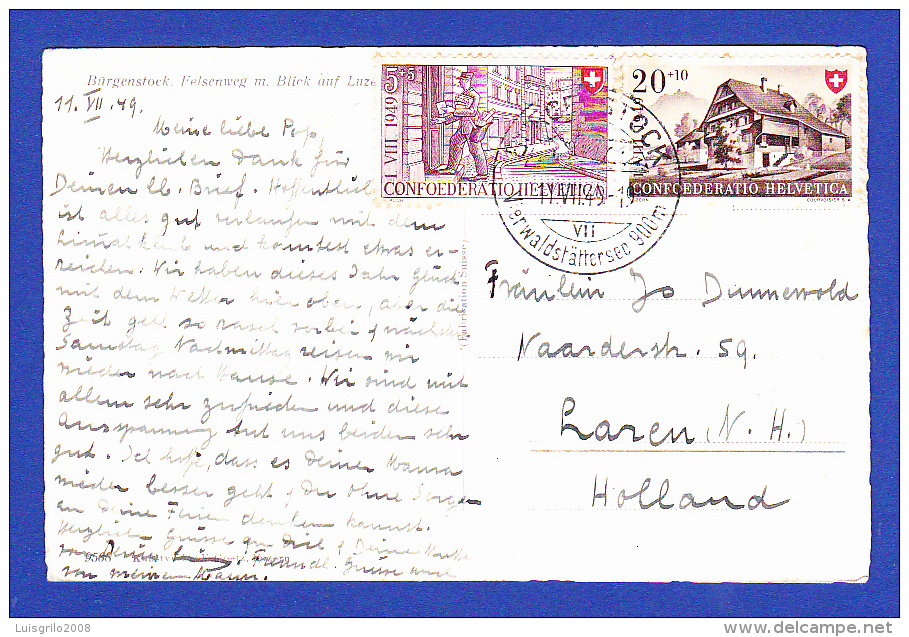 Bürgenstock. Felsenweg m. Blick auf Luze
11. VII. 49.
Meine liebe Pop
Herzlichen Dank für
Deinen lb. Brief. Hoffentlich
ist alles gut verlaufen mit dem
und konntest etwas er-
reichen. Wir haben dieses Jahr Glück
mit dem Wetter hier oben, aber die
Zeit geht so rasch vorbei & nächsten
Samstag Nachmittag reisen wir
wieder nach Hause. Wir sind mit
allem sehr zufrieden und diese
Ausspannung tut uns beiden sehr
gut. Ich hoffe, dass es Deiner Mama
wieder besser geht & Du ohne Sorgen
an Deine Ferien denken kannst.
Herzliche Grüsse an Dich & Deine
von Deiner Freundl. Grüsse
von meinem Mann.
9506
(Fabrikation Suisse)
5+5
1 VIII 1949
CONFOEDERATIO HELVETICA
20+10
CONFOEDERATIO HELVETICA
COURVOISIER S.A.
11.VII.49
VII
Vierwaldstättersee 900m
Fräulein Jo Dunnewold
Naarderstr. 59.
Laren (N.H.)
Holland
Luisgrilo2008
www.delcampe.net